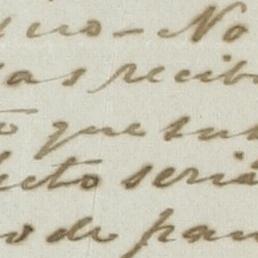 uro - No
las recib
o que sus
fecto seria
o de pau